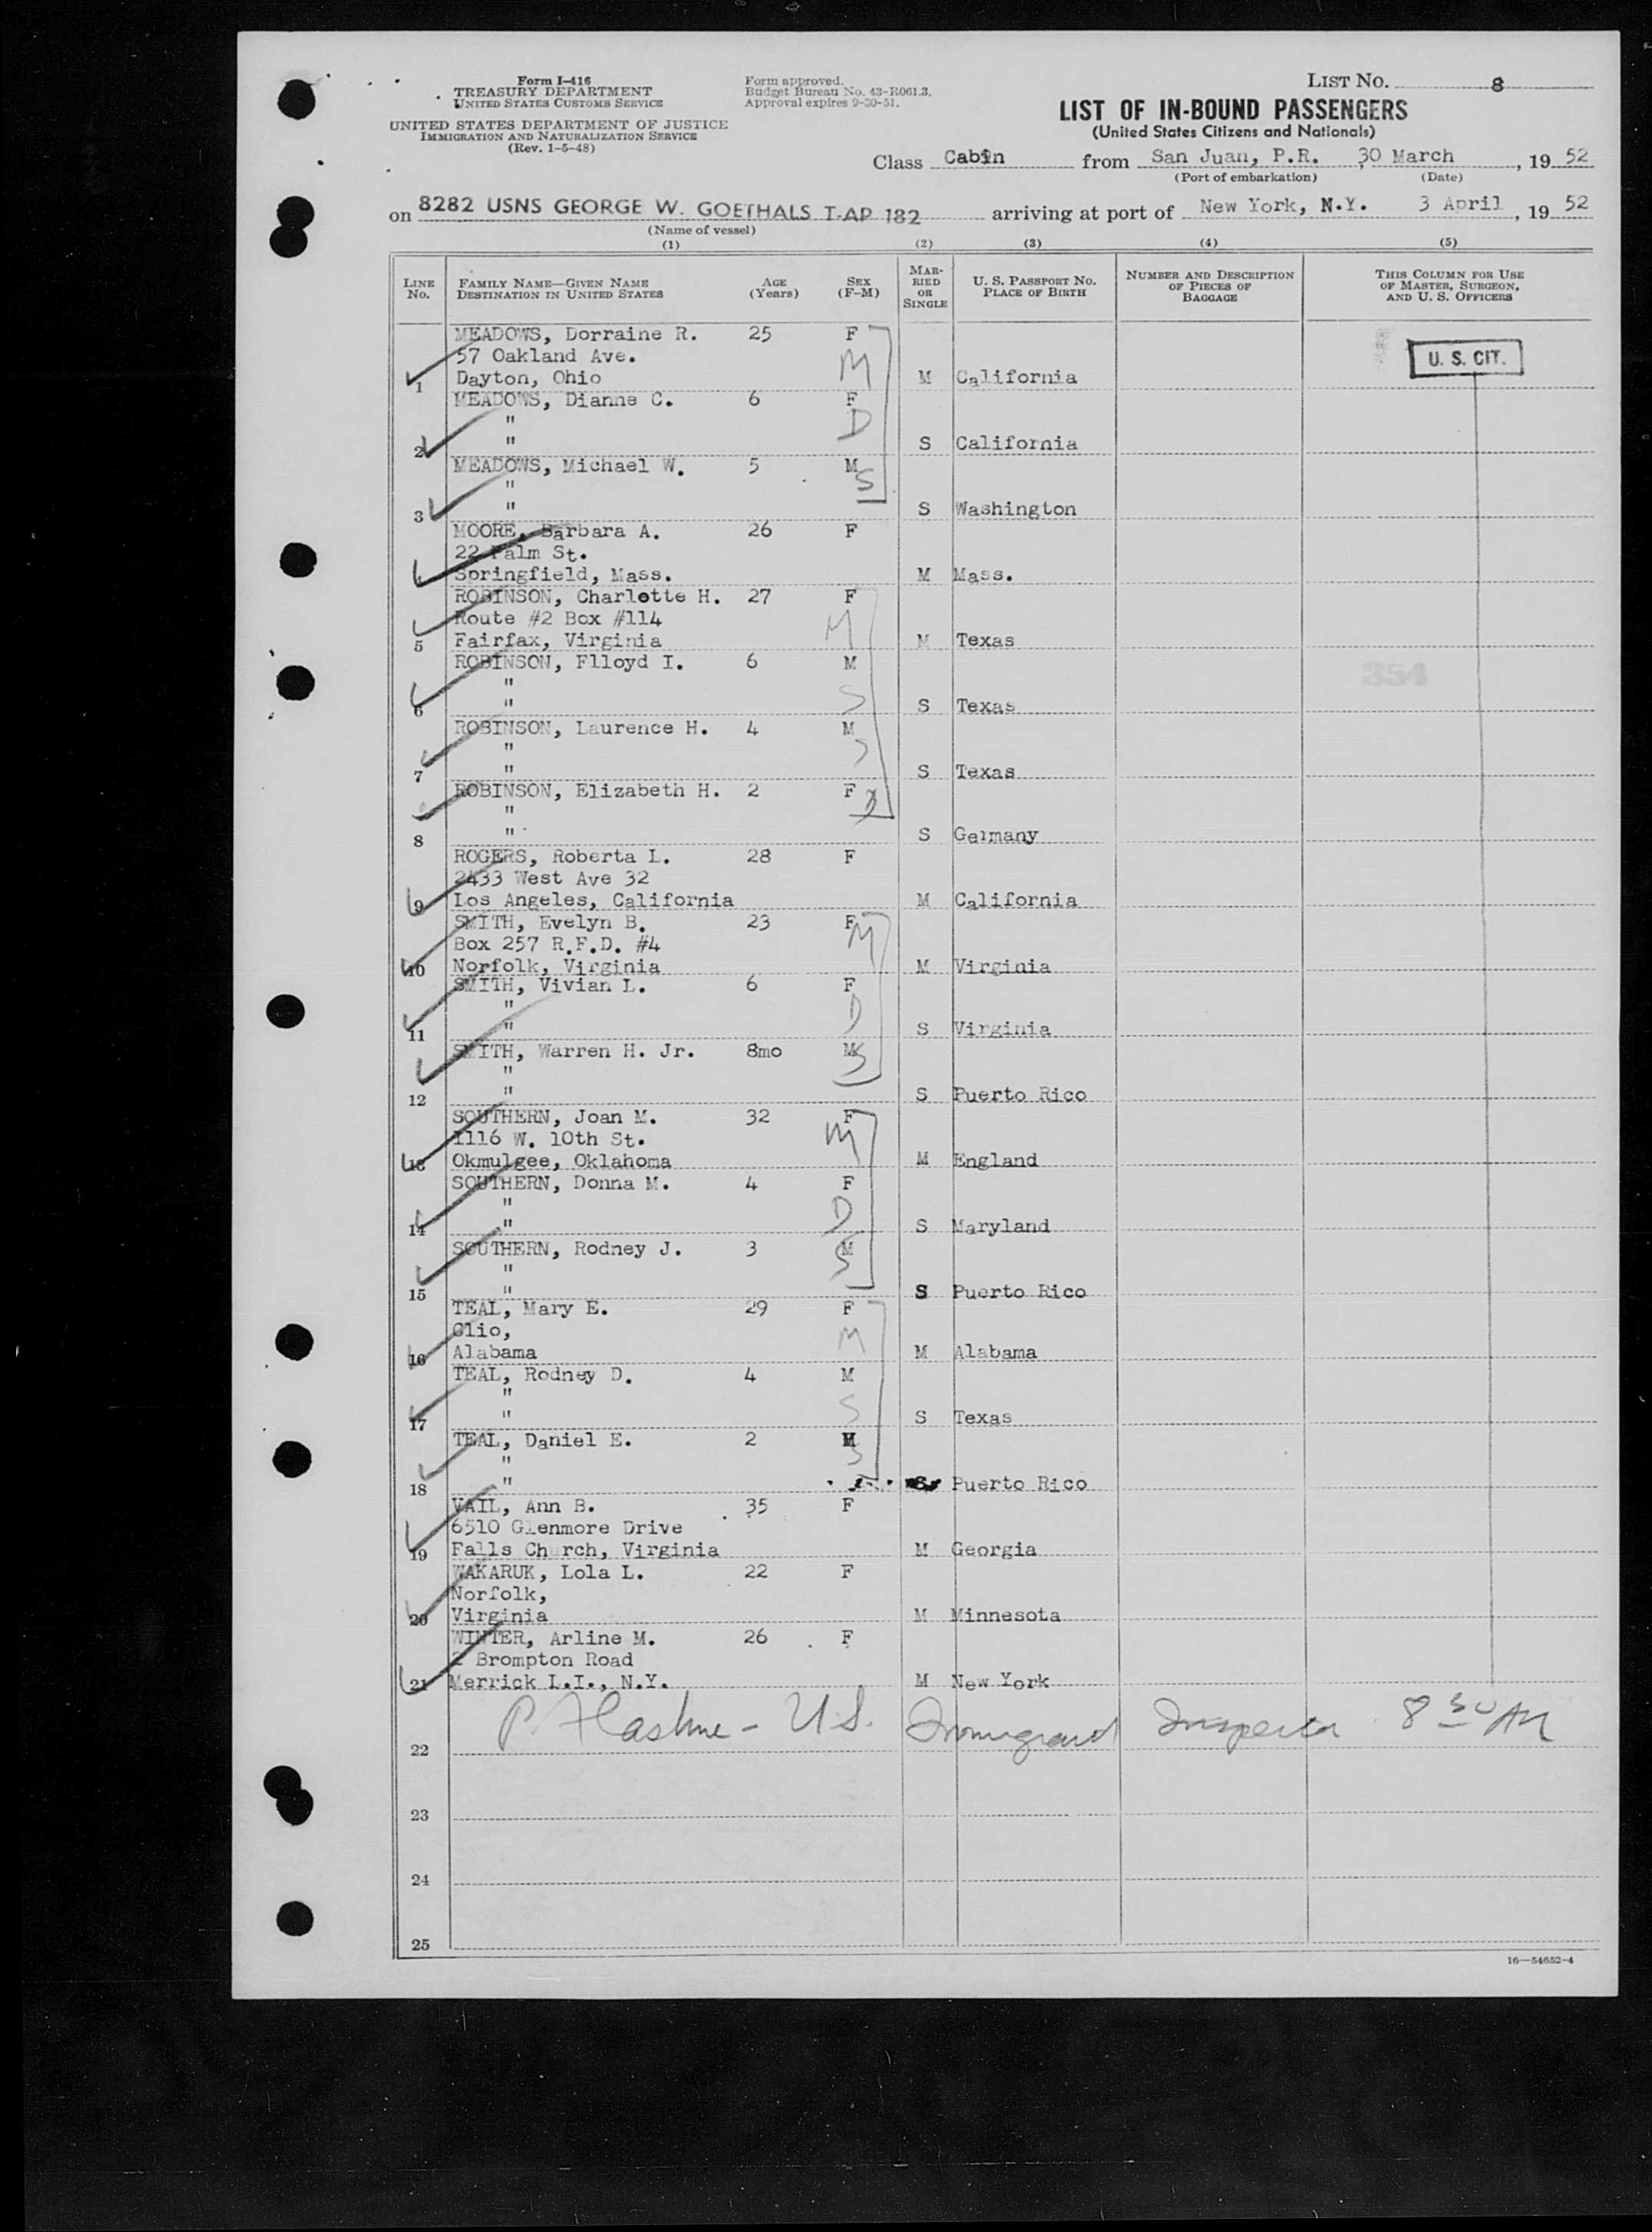 Form I-416
TREASURY DEPARTMENT
UNITED STATES CUSTOMS SERVICE
UNITED STATES DEPARTMENT OF JUSTICE
IMMIGRATION AND NATURALIZATION SERVICE
(Rev. 1-5-48)
Form approved.
Budget Bureau No. 43-R061.3.
Approval expires 9-30-51.
LIST NO. 8
LIST OF IN-BOUND PASSENGERS
(United States Citizens and Nationals)
Class Cabin from San Juan, P.R. 30 March, 1952
(Port of embarkation) (Date)
on 8282 USNS GEORGE W. GOETHALS T-AP 182 arriving at port of New York, N.Y. 3 April, 1952
(Name of vessel)
(1) (2) (3) (4) (5)
LINE NO. FAMILY NAME—GIVEN NAME DESTINATION IN UNITED STATES AGE (Years) SEX (F-M) MARRIED OR SINGLE U. S. PASSPORT NO. PLACE OF BIRTH NUMBER AND DESCRIPTION OF PIECES OF BAGGAGE THIS COLUMN FOR USE OF MASTER, SURGEON, AND U. S. OFFICERS
MEADOWS, Dorraine R. 25 F
57 Oakland Ave. M U. S. CIT.
1 Dayton, Ohio M California
MEADOWS, Dianne C. 6 F
" D
2 " S California
MEADOWS, Michael W. 5 M
" S
3 " S Washington
MOORE, Barbara A. 26 F
22 Palm St.
4 Springfield, Mass. M Mass.
ROBINSON, Charlotte H. 27 F
Route #2 Box #114 M
5 Fairfax, Virginia M Texas
ROBINSON, Flloyd I. 6 M
" 354
6 " S S Texas
ROBINSON, Laurence H. 4 M
"
7 " S Texas
ROBINSON, Elizabeth H. 2 F
"
8 " S Germany
ROGERS, Roberta L. 28 F
2433 West Ave 32
9 Los Angeles, California M California
SMITH, Evelyn B. 23 F
Box 257 R.F.D. #4 M
10 Norfolk, Virginia M Virginia
SMITH, Vivian L. 6 F
" D
11 " S Virginia
SMITH, Warren H. Jr. 8mo M
" S
12 " S Puerto Rico
SOUTHERN, Joan M. 32 F
1116 W. 10th St. M
13 Okmulgee, Oklahoma M England
SOUTHERN, Donna M. 4 F
" D
14 " S Maryland
SOUTHERN, Rodney J. 3 M
" S
15 " S Puerto Rico
TEAL, Mary E. 29 F
Clio, M
16 Alabama M Alabama
TEAL, Rodney D. 4 M
" S
17 " S Texas
TEAL, Daniel E. 2 M
" S
18 " S Puerto Rico
VAIL, Ann B. 35 F
6510 Glenmore Drive
19 Falls Church, Virginia M Georgia
WAKARUK, Lola L. 22 F
Norfolk,
20 Virginia M Minnesota
WINTER, Arline M. 26 F
2 Brompton Road
21 Merrick L.I., N.Y. M New York
P. U.S. Immigrant Inspector 8 30 AM
22
23
24
25
16—54652-4